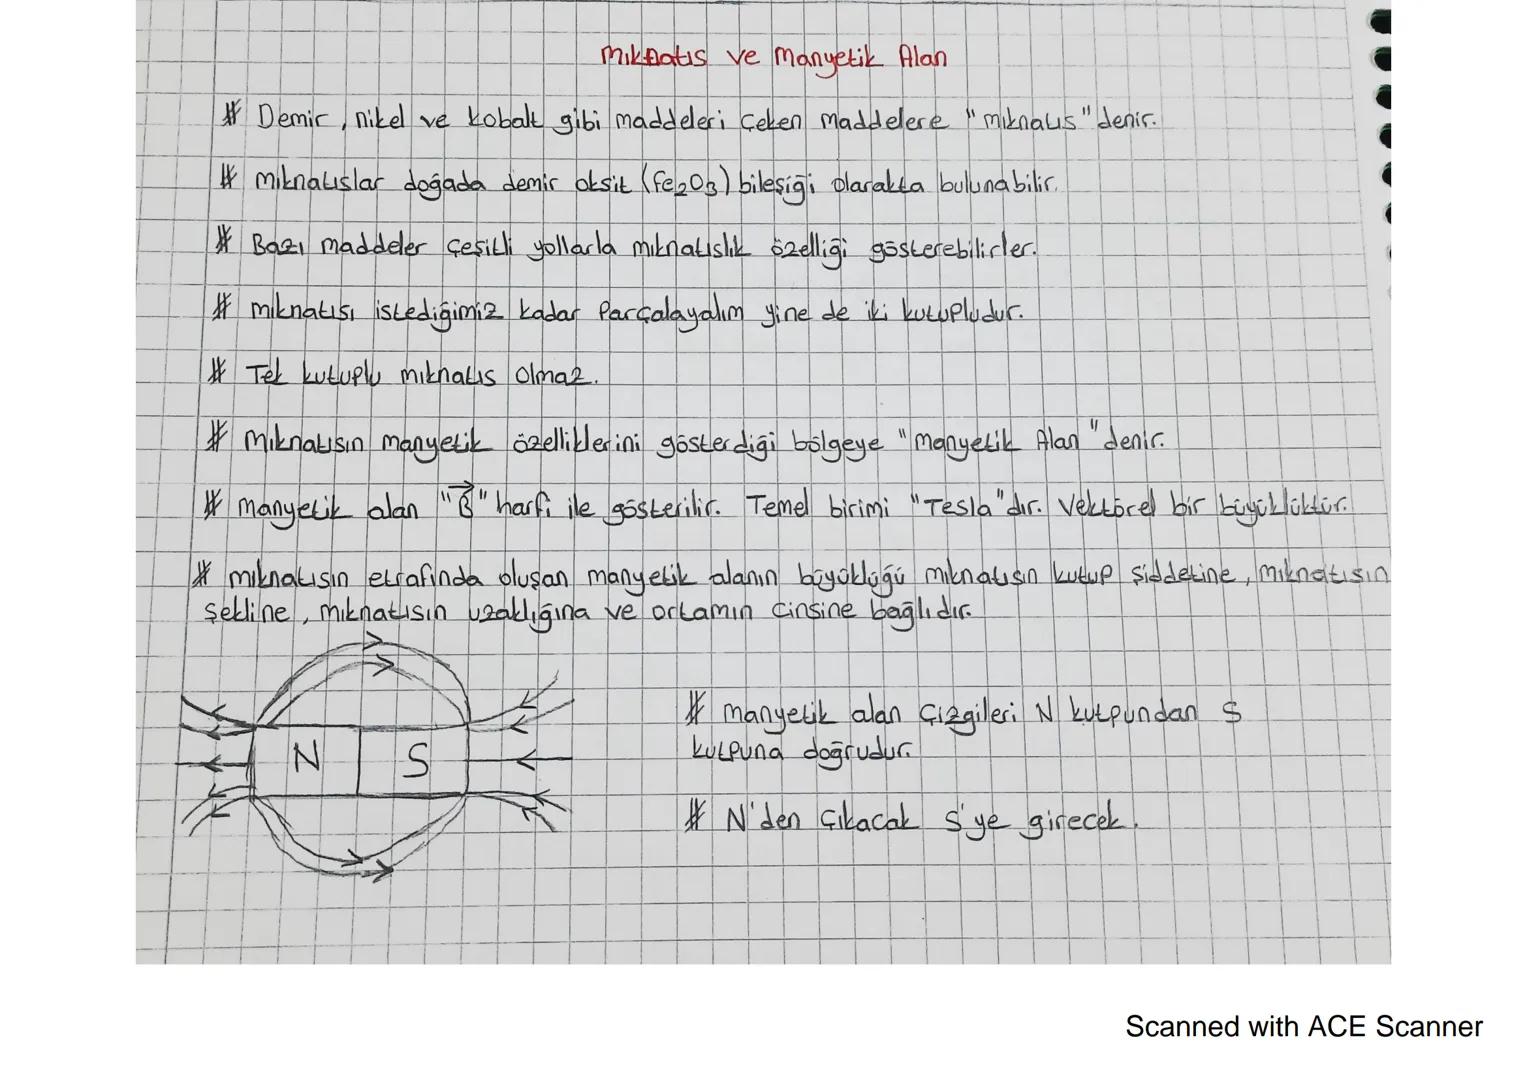 Mıknatıs ve Manyetik Alan
# Demir, nikel ve kobalt gibi maddeleri çeken maddelere "mıknatıs" denir.
# mıknatıslar doğada demir oksit (Fe₂O₃) bileşiği olarakta bulunabilir.
# Bazı maddeler çeşitli yollarla mıknatıslık özelliği gösterebilirler.
# mıknatısı istediğimiz kadar Parçalayalım yine de iki kutupludur.
# Tek kutuplu mıknatıs olmaz.
# mıknatısın manyetik özelliklerini gösterdiği bölgeye "manyetik Alan" denir.
# manyetik alan "B⃗" harfi ile gösterilir. Temel birimi "Tesla"dır. Vektörel bir büyüklüktür.
# mıknatısın etrafında oluşan manyetik alanın büyüklüğü mıknatısın kutup şiddetine, mıknatısın
şekline, mıknatısın uzaklığına ve ortamın cinsine bağlıdır.
N S
# manyetik alan çizgileri N kutpundan S
kutpuna doğrudur.
# N'den çıkacak S'ye girecek.
Scanned with ACE Scanner